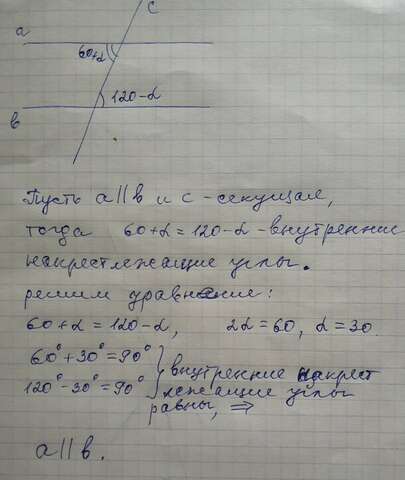 c
a
60+α
120-α
b
Пусть a || b и c - секущая,
тогда 60+α = 120-α - внутренние
накрестлежащие углы.
решим уравнение:
60+α = 120-α, 2α = 60, α = 30.
60° + 30° = 90° } внутренние накрест
120° - 30° = 90° } лежащие углы
равны, ⇒
a || b.